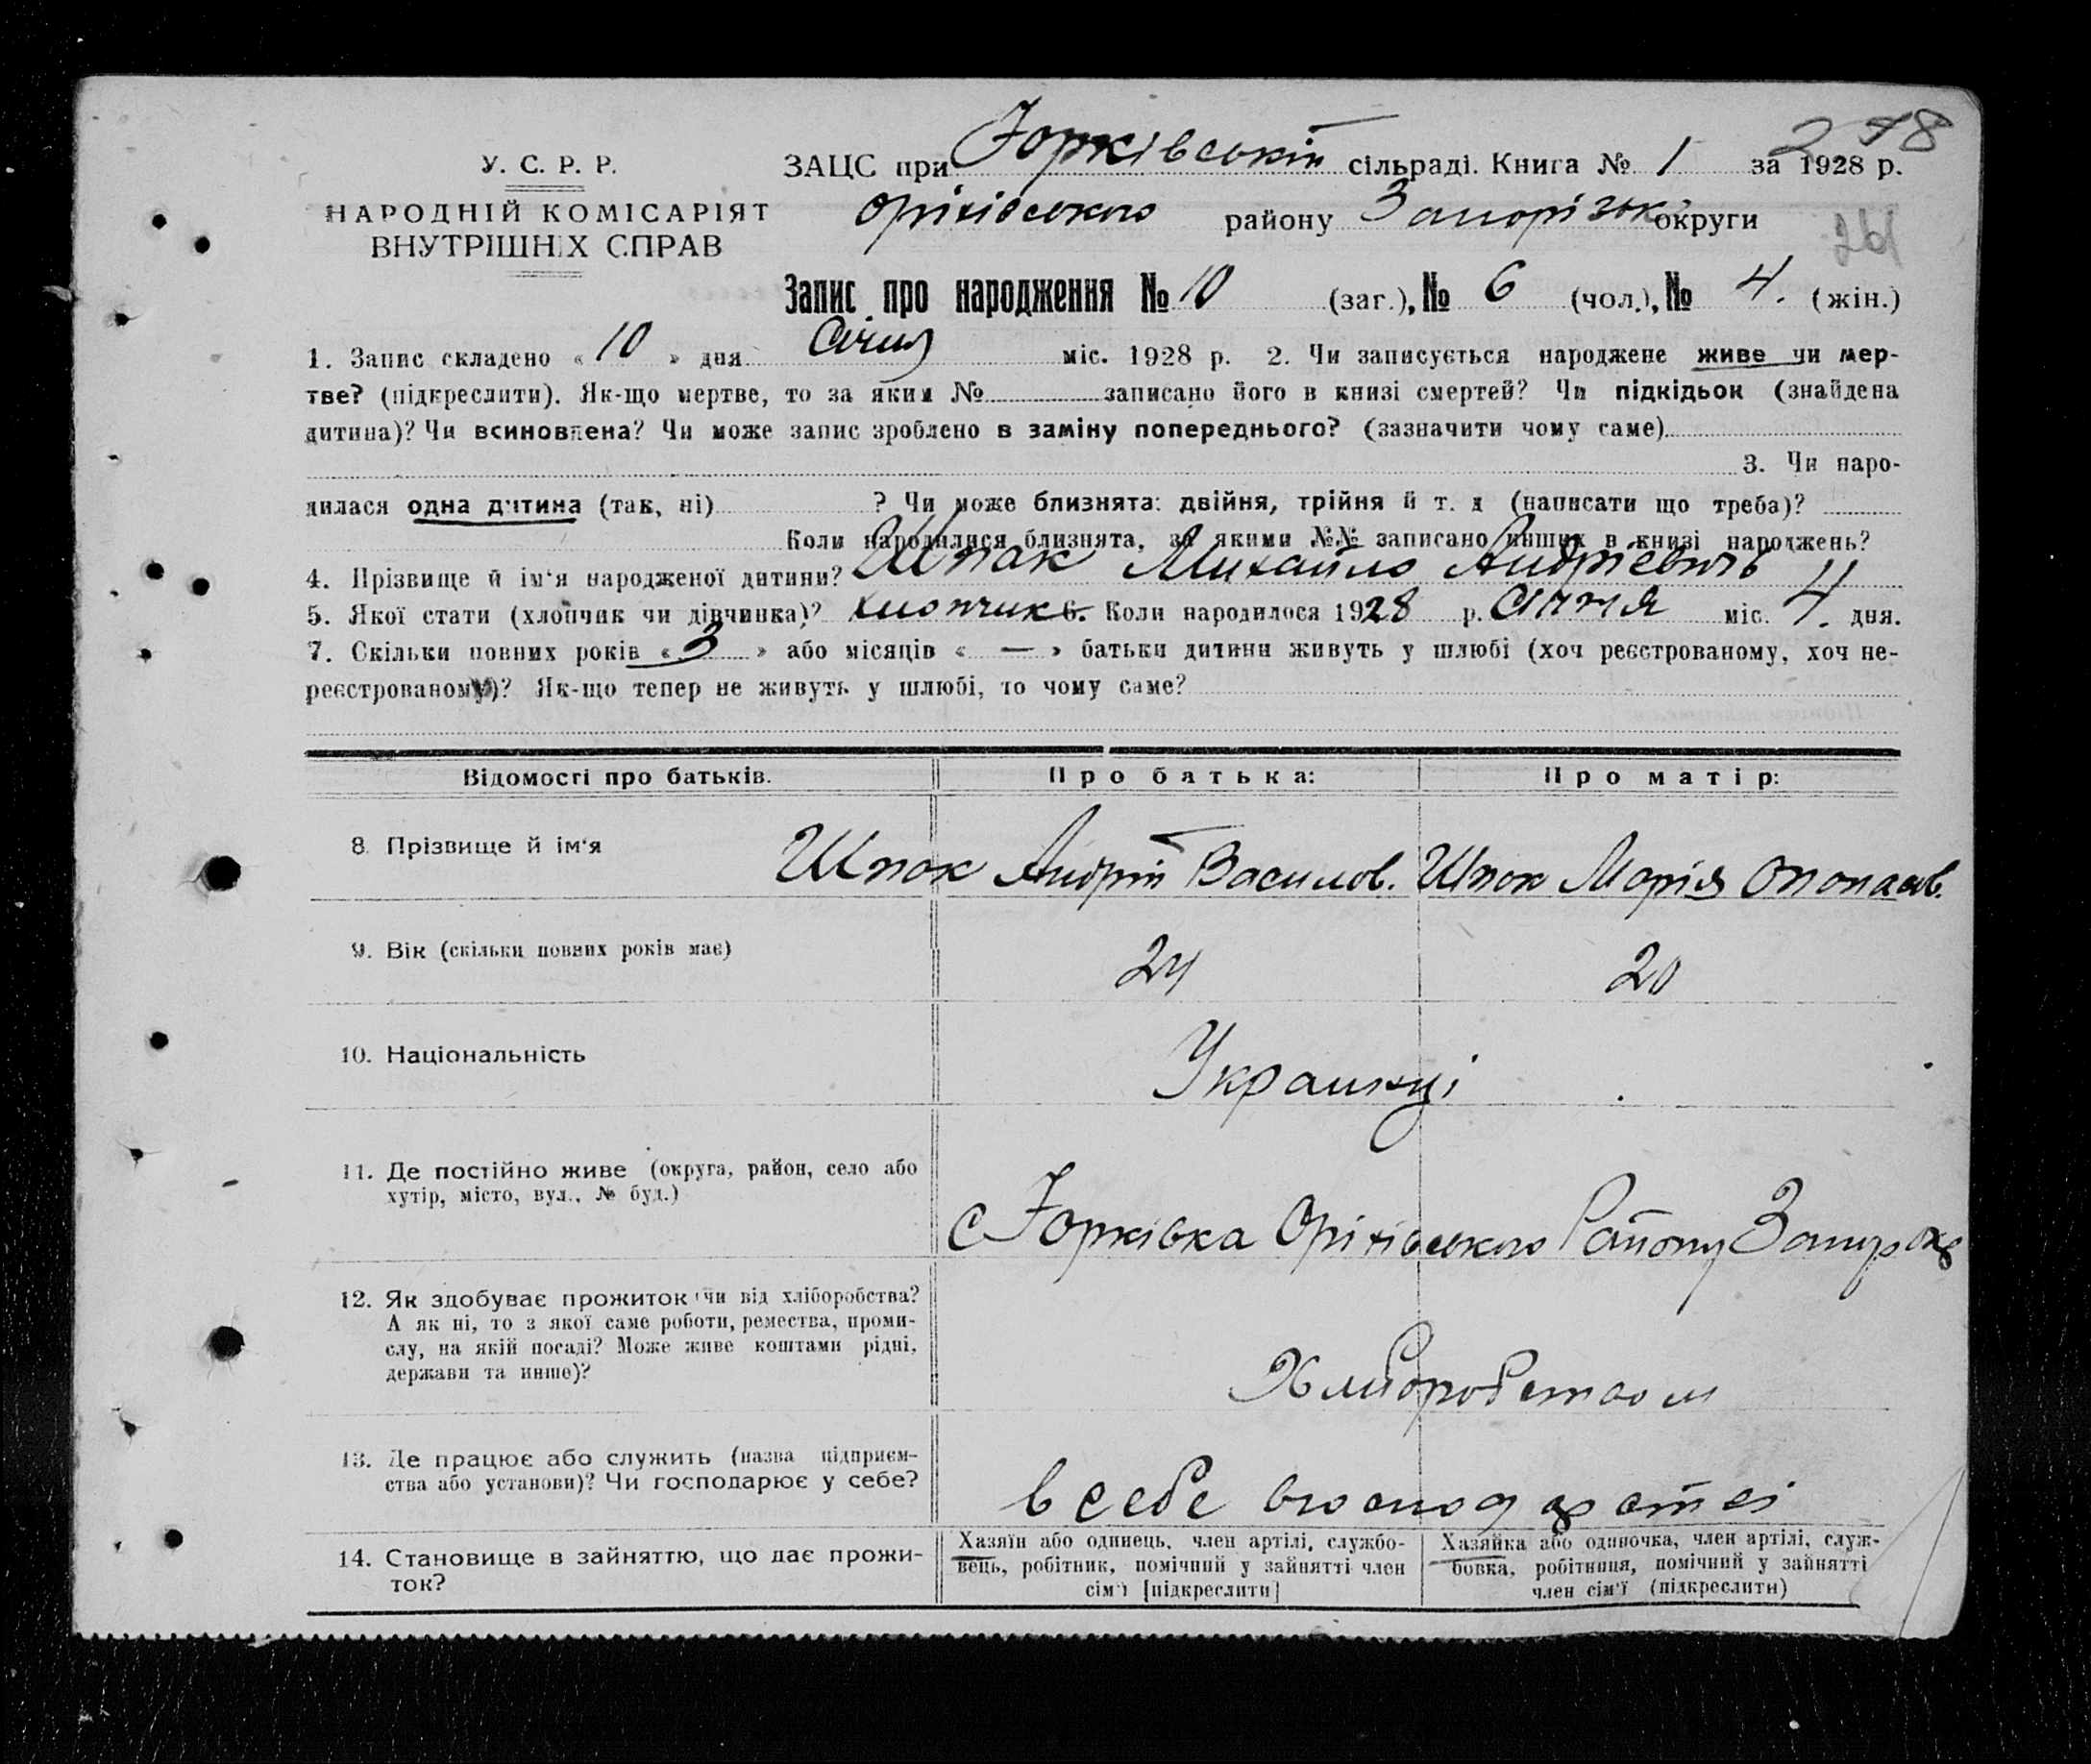 278
У. С. Р. Р. ЗАЦС при Юрківській сільраді. Книга № 1 за 1928 р.
НАРОДНІЙ КОМІСАРІЯТ Оріхівського району Запорізьк округи
ВНУТРІШНІХ СПРАВ
Запис про народження № 10 (заг.), № 6 (чол.), № 4. (жін.)
1. Запис складено « 10 » дня Січня міс. 1928 р. 2. Чи записується народжене живе чи мер-
тве? (підкреслити). Як-що мертве, то за яким № записано його в книзі смертей? Чи підкідьок (знайдена
дитина)? Чи всиновлена? Чи може запис зроблено в заміну попереднього? (зазначити чому саме)
3. Чи наро-
дилася одна дитина (так, ні) ? Чи може близнята: двійня, трійня й т. д (написати що треба)?
Коли народилися близнята, за якими №№ записано инших в книзі народжень?
4. Прізвище й ім'я народженої дитини? Шпак Михайло Андрієвичь
5. Якої стати (хлопчик чи дівчинка)? хлопчик 6. Коли народилося 1928 р. Січня міс. 4. дня.
7. Скільки повних років « 3 » або місяців « — » батьки дитини живуть у шлюбі (хоч реєстрованому, хоч не-
реєстрованому)? Як-що тепер не живуть у шлюбі, то чому саме?
Відомості про батьків. Про батька: Про матір:
8. Прізвище й ім'я Шпак Андрій Василов. Шпак Марія Опанасов.
9. Вік (скільки повних років має) 24 20
10. Національність Украинці
11. Де постійно живе (округа, район, село або
хутір, місто, вул., № буд.) С Юрківка Оріхівського Району Запор окр
12. Як здобуває прожиток чи від хліборобства?
А як ні, то з якої саме роботи, ремества, проми-
слу, на якій посаді? Може живе коштами рідні,
держави та инше)? Хлиборобством
13. Де працює або служить (назва підприєм-
ства або установи)? Чи господарює у себе? в себе в господарстві
14. Становище в зайняттю, що дає прожи-
ток?
Хазяїн або одинець, член артілі, службо-
вець, робітник, помічний у зайнятті член
сім'ї [підкреслити]
Хазяйка або одиночка, член артілі, служ-
бовка, робітниця, помічний у зайнятті
член сім'ї (підкреслити)